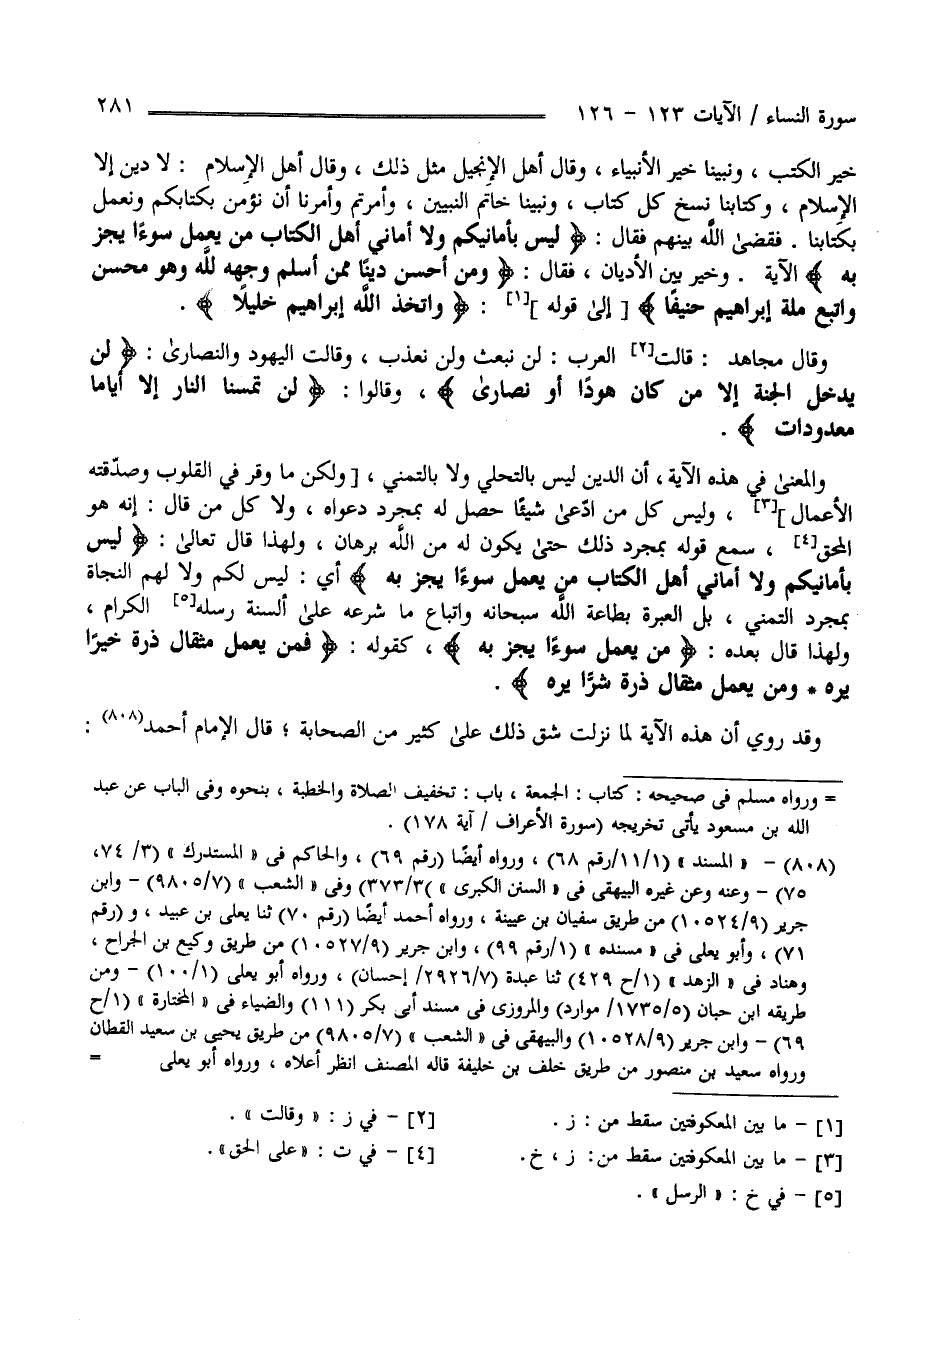 سورة النساء / الآيات ١٢٣ – ١٢٦ ٢٨١
خير الكتب ، ونبينا خير الأنبياء ، وقال أهل الإنجيل مثل ذلك ، وقال أهل الإسلام : لا دين إلا
الإسلام ، وكتابنا نسخ كل كتاب ، ونبينا خاتم النبيين ، وأمرتم وأمرنا أن نؤمن بكتابكم ونعمل
بكتابنا . فقضىٰ اللَّه بينهم فقال : ﴿ ليس بأمانيكم ولا أماني أهل الكتاب من يعمل سوءًا يجز
به ﴾ الآية . وخير بين الأديان ، فقال : ﴿ ومن أحسن دينًا ممن أسلم وجهه للَّه وهو محسن
واتبع ملة إبراهيم حنيفًا ﴾ [ إلىٰ قوله ][١] : ﴿ واتخذ اللَّه إبراهيم خليلًا ﴾ .
وقال مجاهد : قالت[٢] العرب : لن نبعث ولن نعذب ، وقالت اليهود والنصارىٰ : ﴿ لن
يدخل الجنة إلا من كان هودًا أو نصارىٰ ﴾ ، وقالوا : ﴿ لن تمسنا النار إلا أياما
معدودات ﴾ .
والمعنىٰ في هذه الآية ، أن الدين ليس بالتحلي ولا بالتمني ، [ ولكن ما وقر في القلوب وصدّقته
الأعمال ][٣] ، وليس كل من ادّعىٰ شيئًا حصل له بمجرد دعواه ، ولا كل من قال : إنه هو
المحق[٤] ، سمع قوله بمجرد ذلك حتىٰ يكون له من اللَّه برهان ، ولهذا قال تعالىٰ : ﴿ ليس
بأمانيكم ولا أماني أهل الكتاب من يعمل سوءًا يجز به ﴾ أي : ليس لكم ولا لهم النجاة
بمجرد التمني ، بل العبرة بطاعة اللَّه سبحانه واتباع ما شرعه علىٰ ألسنة رسله[٥] الكرام ،
ولهذا قال بعده : ﴿ من يعمل سوءًا يجز به ﴾ ، كقوله : ﴿ فمن يعمل مثقال ذرة خيرًا
يره * ومن يعمل مثقال ذرة شرًّا يره ﴾ .
وقد روي أن هذه الآية لما نزلت شق ذلك علىٰ كثير من الصحابة ؛ قال الإمام أحمد(٨٠٨) :
= ورواه مسلم فى صحيحه : كتاب : الجمعة ، باب : تخفيف الصلاة والخطبة ، بنحوه وفى الباب عن عبد
الله بن مسعود يأتى تخريجه (سورة الأعراف / آية ١٧٨) .
(٨٠٨) – « المسند » (١١/١/رقم ٦٨) ، ورواه أيضًا (رقم ٦٩) ، والحاكم فى « المستدرك » (٣/ ٧٤،
٧٥) – وعنه وعن غيره البيهقى فى « السنن الكبرى » )٣٧٣/٣) وفى « الشعب » (٩٨٠٥/٧) – وابن
جرير (١٠٥٢٤/٩) من طريق سفيان بن عيينة ، ورواه أحمد أيضًا (رقم ٧٠) ثنا يعلى بن عبيد ، و (رقم
٧١) ، وأبو يعلى فى « مسنده » (١/رقم ٩٩) ، وابن جرير (١٠٥٢٧/٩) من طريق وكيع بن الجراح ،
وهناد فى « الزهد » (١/ح ٤٢٩) ثنا عبدة (٢٩٢٦/٧/ إحسان) ، ورواه أبو يعلى (١٠٠/١) – ومن
طريقه ابن حبان (١٧٣٥/٥/ موارد) والمروزى فى مسند أبى بكر (١١١) والضياء فى « المختارة » (١/ح
٦٩) – وابن جرير (١٠٥٢٨/٩) والبيهقى فى « الشعب » (٩٨٠٥/٧) من طريق يحيى بن سعيد القطان
ورواه سعيد بن منصور من طريق خلف بن خليفة قاله المصنف انظر أعلاه ، ورواه أبو يعلى =
[١] – ما بين المعكوفتين سقط من : ز . [٢] – في ز : « وقالت » .
[٣] – ما بين المعكوفتين سقط من: ز ، خ. [٤] – في ت : «على الحق» .
[٥] – في خ : « الرسل » .